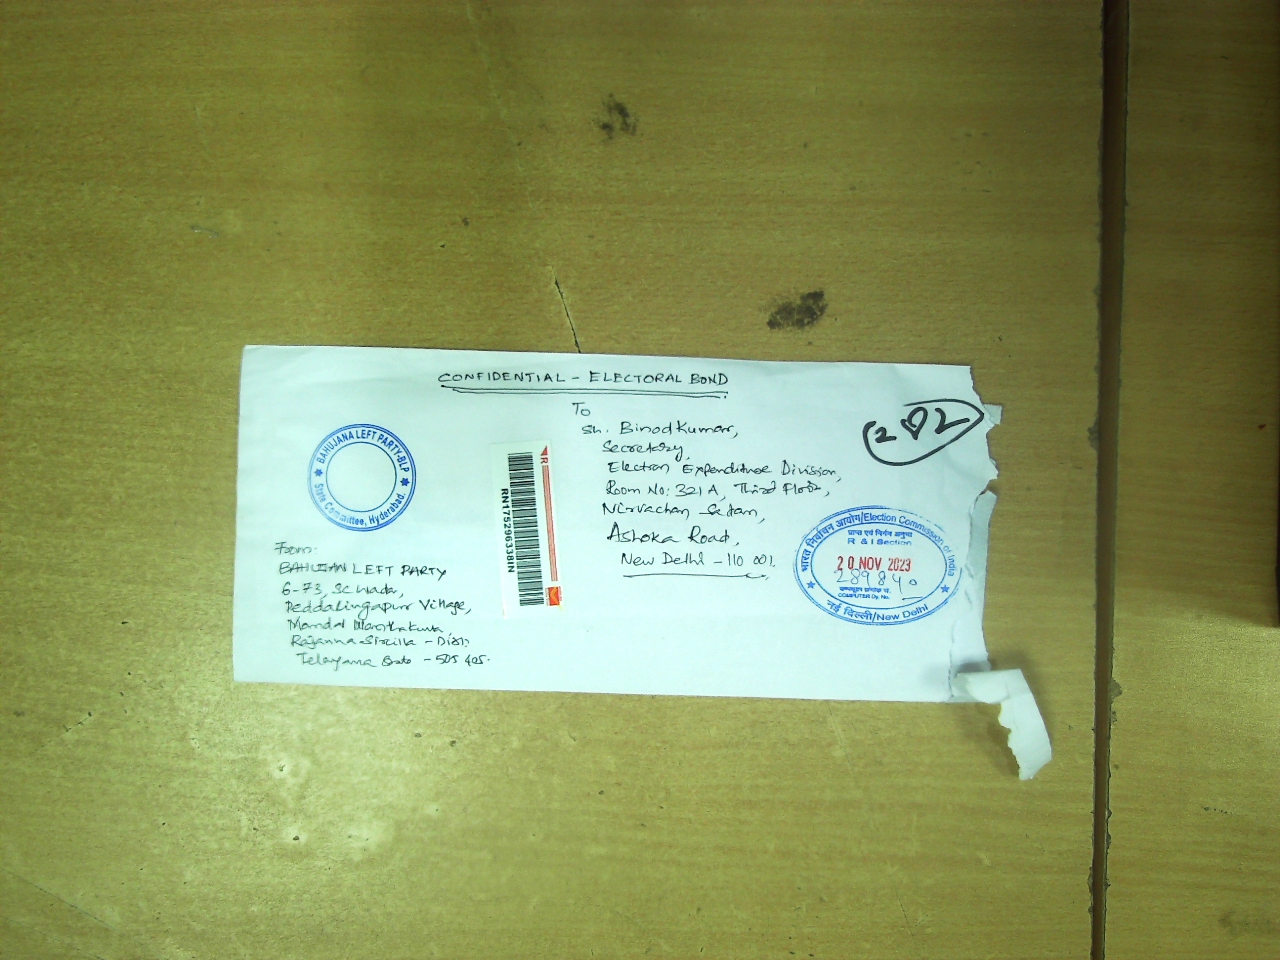 CONFIDENTIAL - ELECTORAL BOND
To
Sh. Binod Kumar,
Secretary,
Election Expenditure Division,
Room No: 321 A, Third Floor,
Nirvachan Sadan,
Ashoka Road,
New Delhi - 110 001.
BAHUJANA LEFT PARTY-BLP
State Committee, Hyderabad.
RN175296338IN
R
From:
BAHUJAN LEFT PARTY
6-73, SC Wada,
Peddalingapur Village,
Mandal
Rajanna Sircilla - Dist,
Telangana State - 505 405.
भारत निर्वाचन आयोग/Election Commission of India
प्राप्त एवं निर्गम अनुभाग
R & I Section
20 NOV 2023
COMPUTER Dy. No.
नई दिल्ली/New Delhi